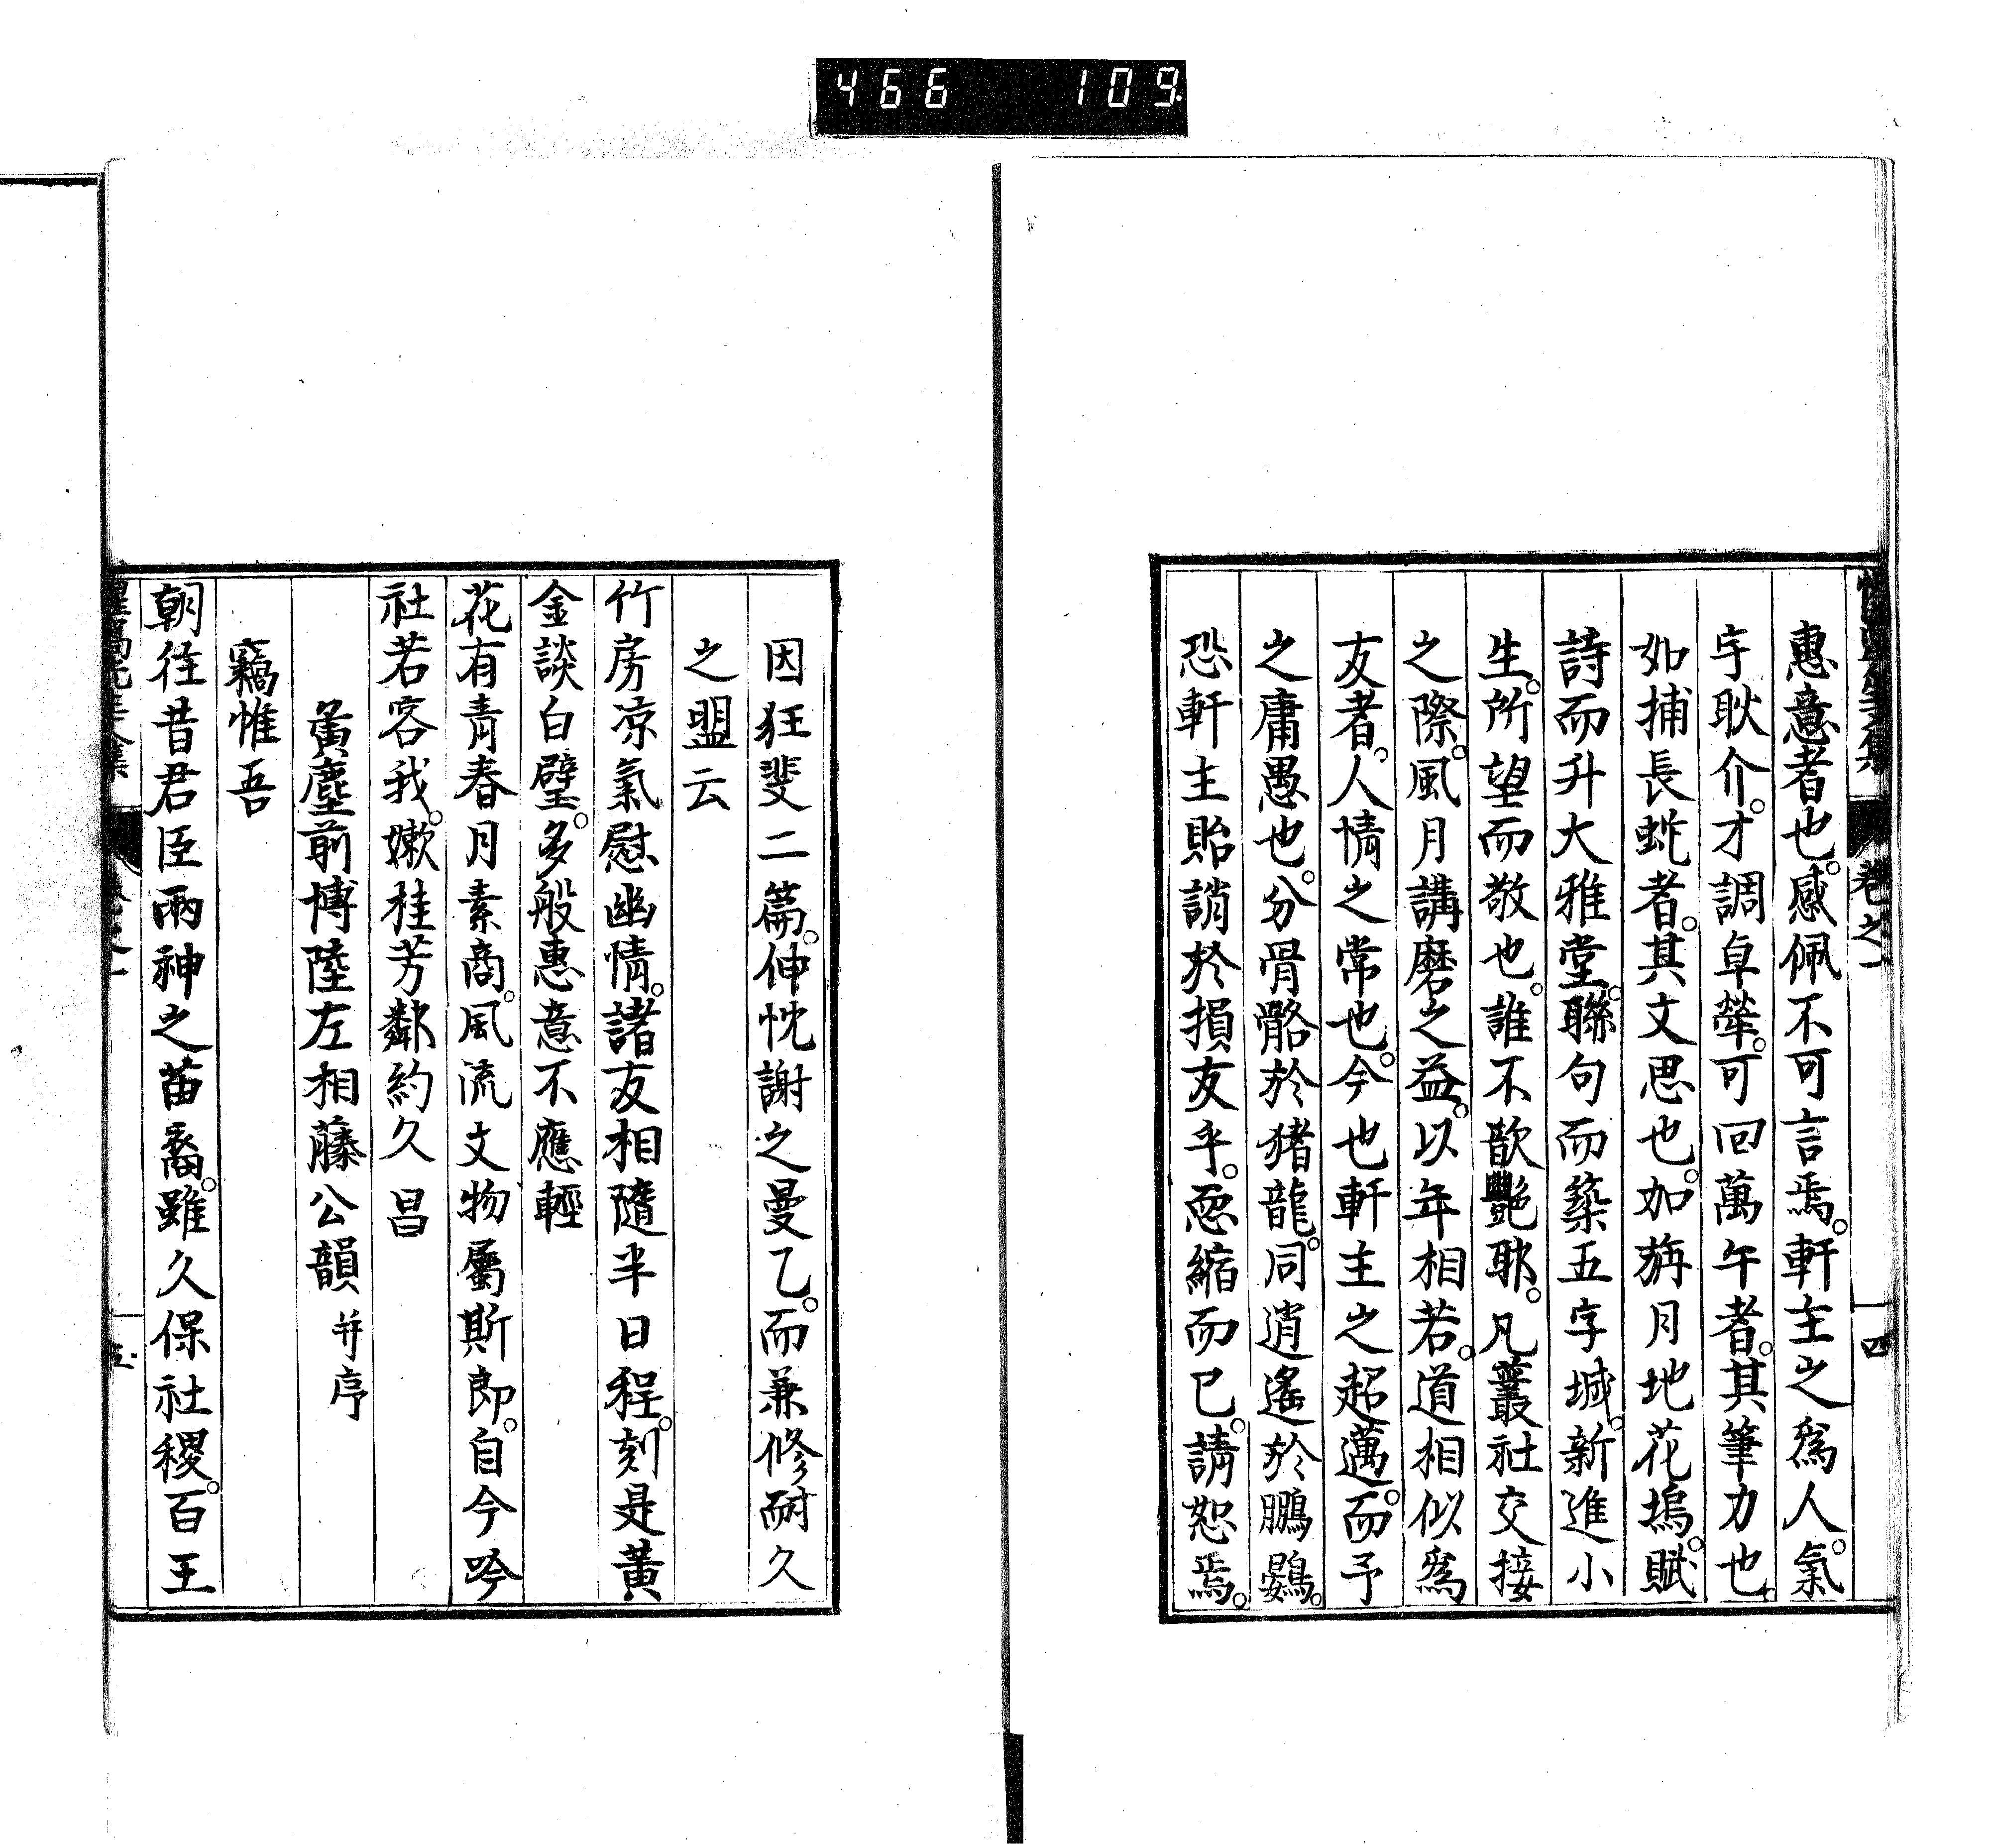 466 109
卷之一
四
惠意者也。感佩不可言焉。軒主之爲人。氣
宇耿介。才調卓犖。可回萬午者。其筆力也。
如捕長蛇者。其文思也。加旃月地花塢。賦
詩而升大雅堂。聯句而築五字城。新進小
生。所望而敬也。誰不歆艷耶。凡叢社交接
之際。風月講磨之益。以年相若。道相似爲
友者。人情之常也。今也軒主之超邁。而予
之庸愚也。分骨骼於猪龍。同逍遙於鵬鷃。
恐軒主貽誚於損友乎。恧縮而已。請恕焉。
因狂斐二篇。伸忱謝之曼乙。而兼修耐久
之盟云
竹房凉氣慰幽情。諸友相隨半日程。刻是黃
金談白璧。多般惠意不應輕
花有青春月素商。風流文物屬斯郎。自今吟
社若容我。嫩桂芳鄰約久昌
黃塵前博陸左相藤公韻 并序
竊惟吾
朝往昔君臣兩神之苗裔。雖久保社稷。百王